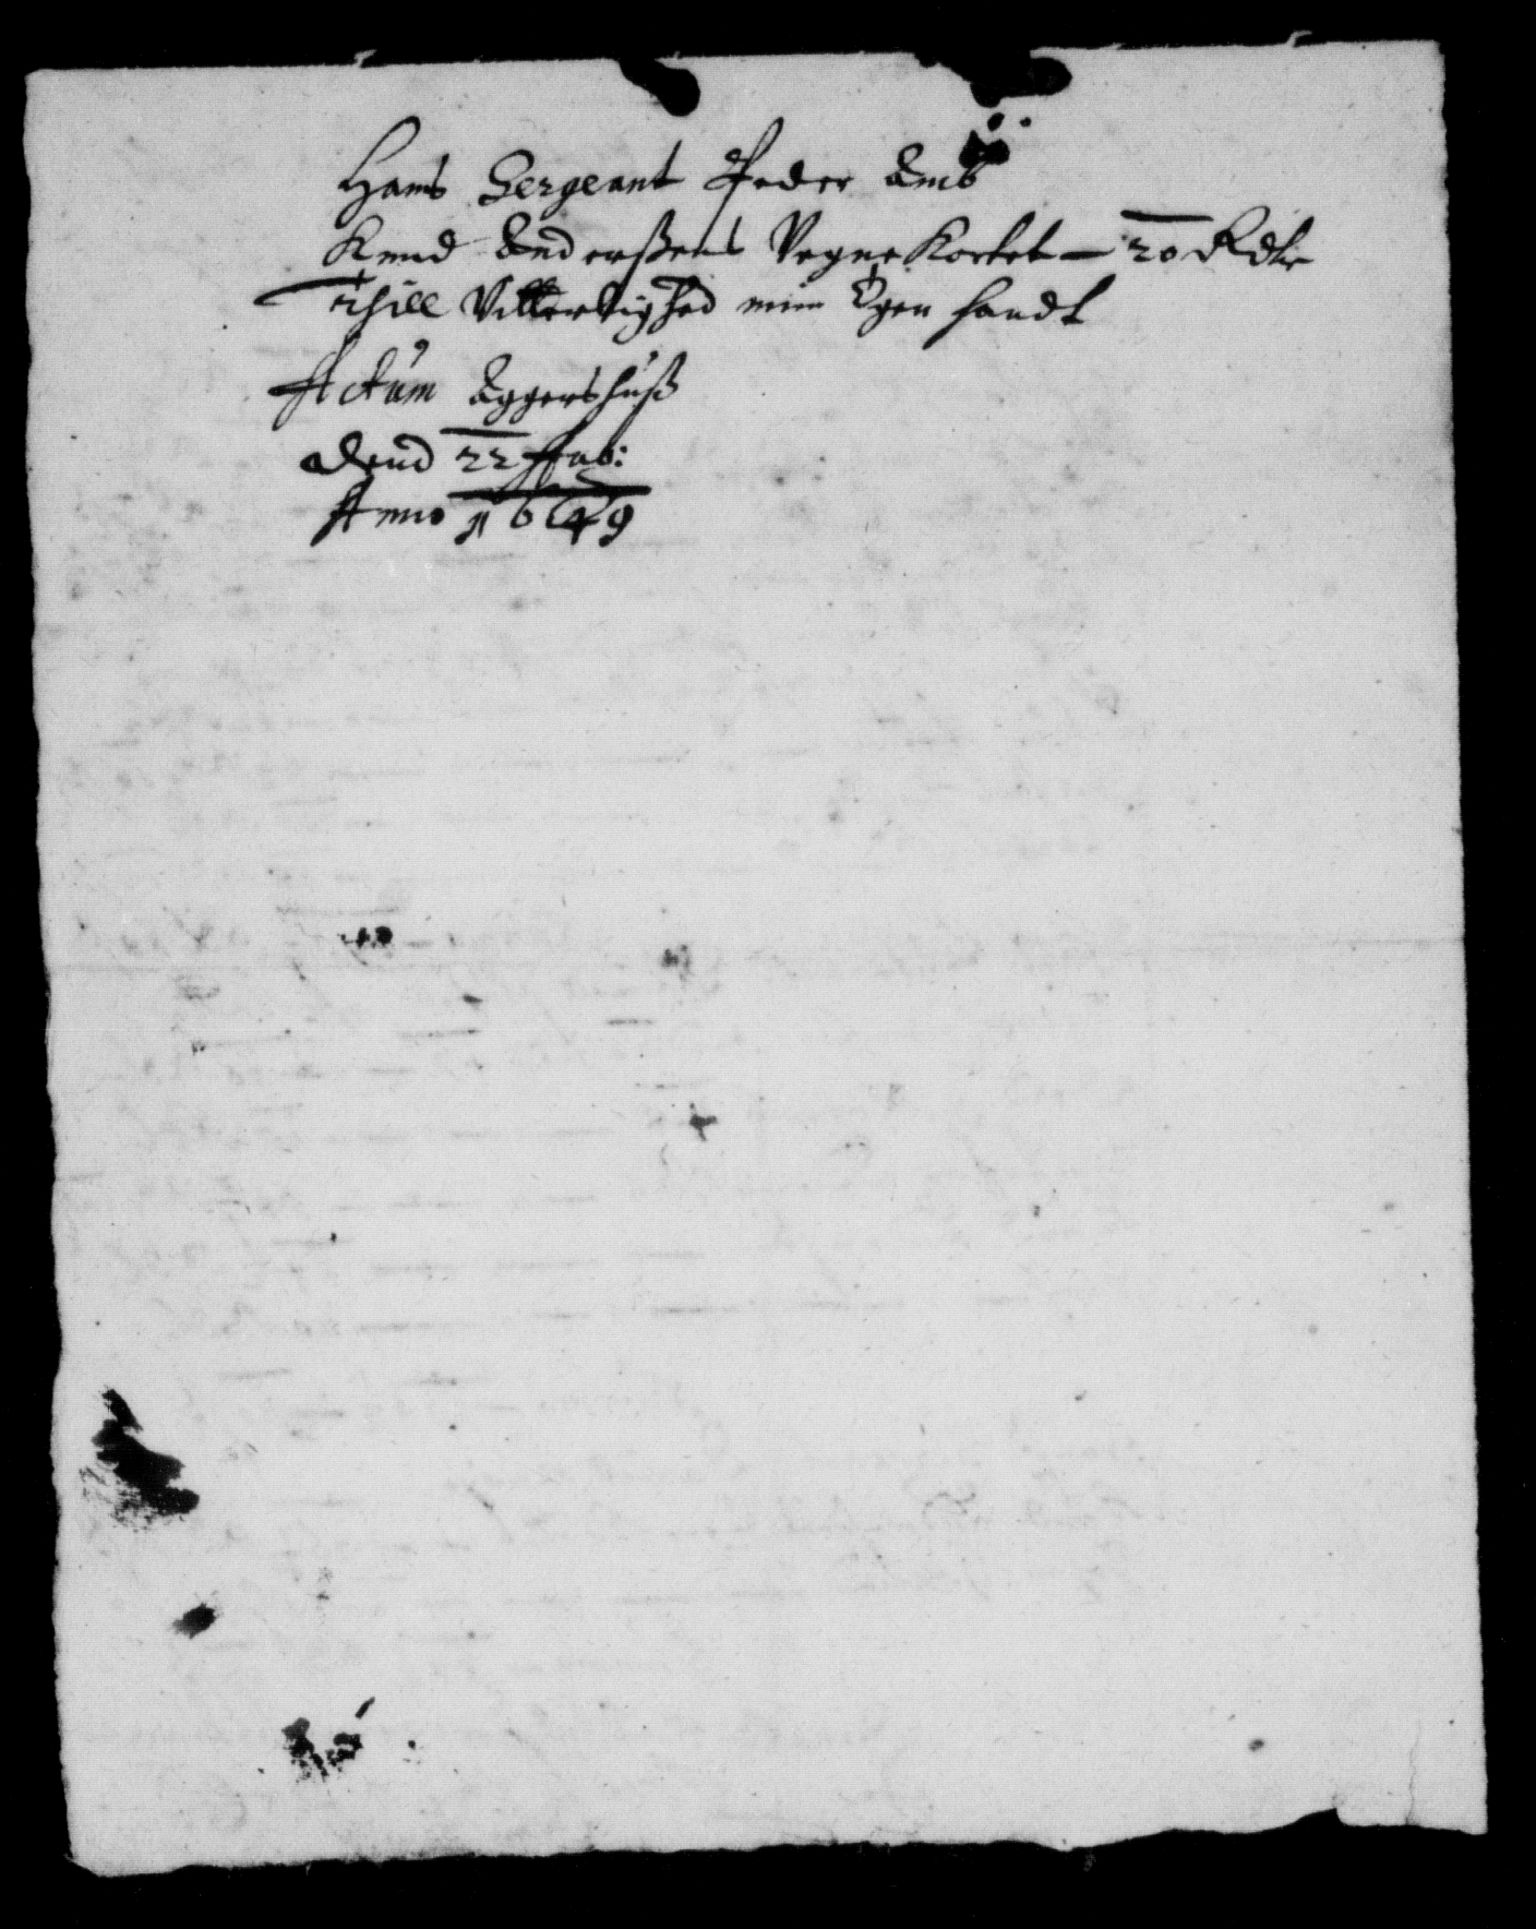 Hans Sergeant Peder
Knud Anderßens Vegne Kortet – 20 Rdlr
Thill Vitterlighed min Egen handt
Actum Aggershuß
Dend 22 Feb:
Anno 1649